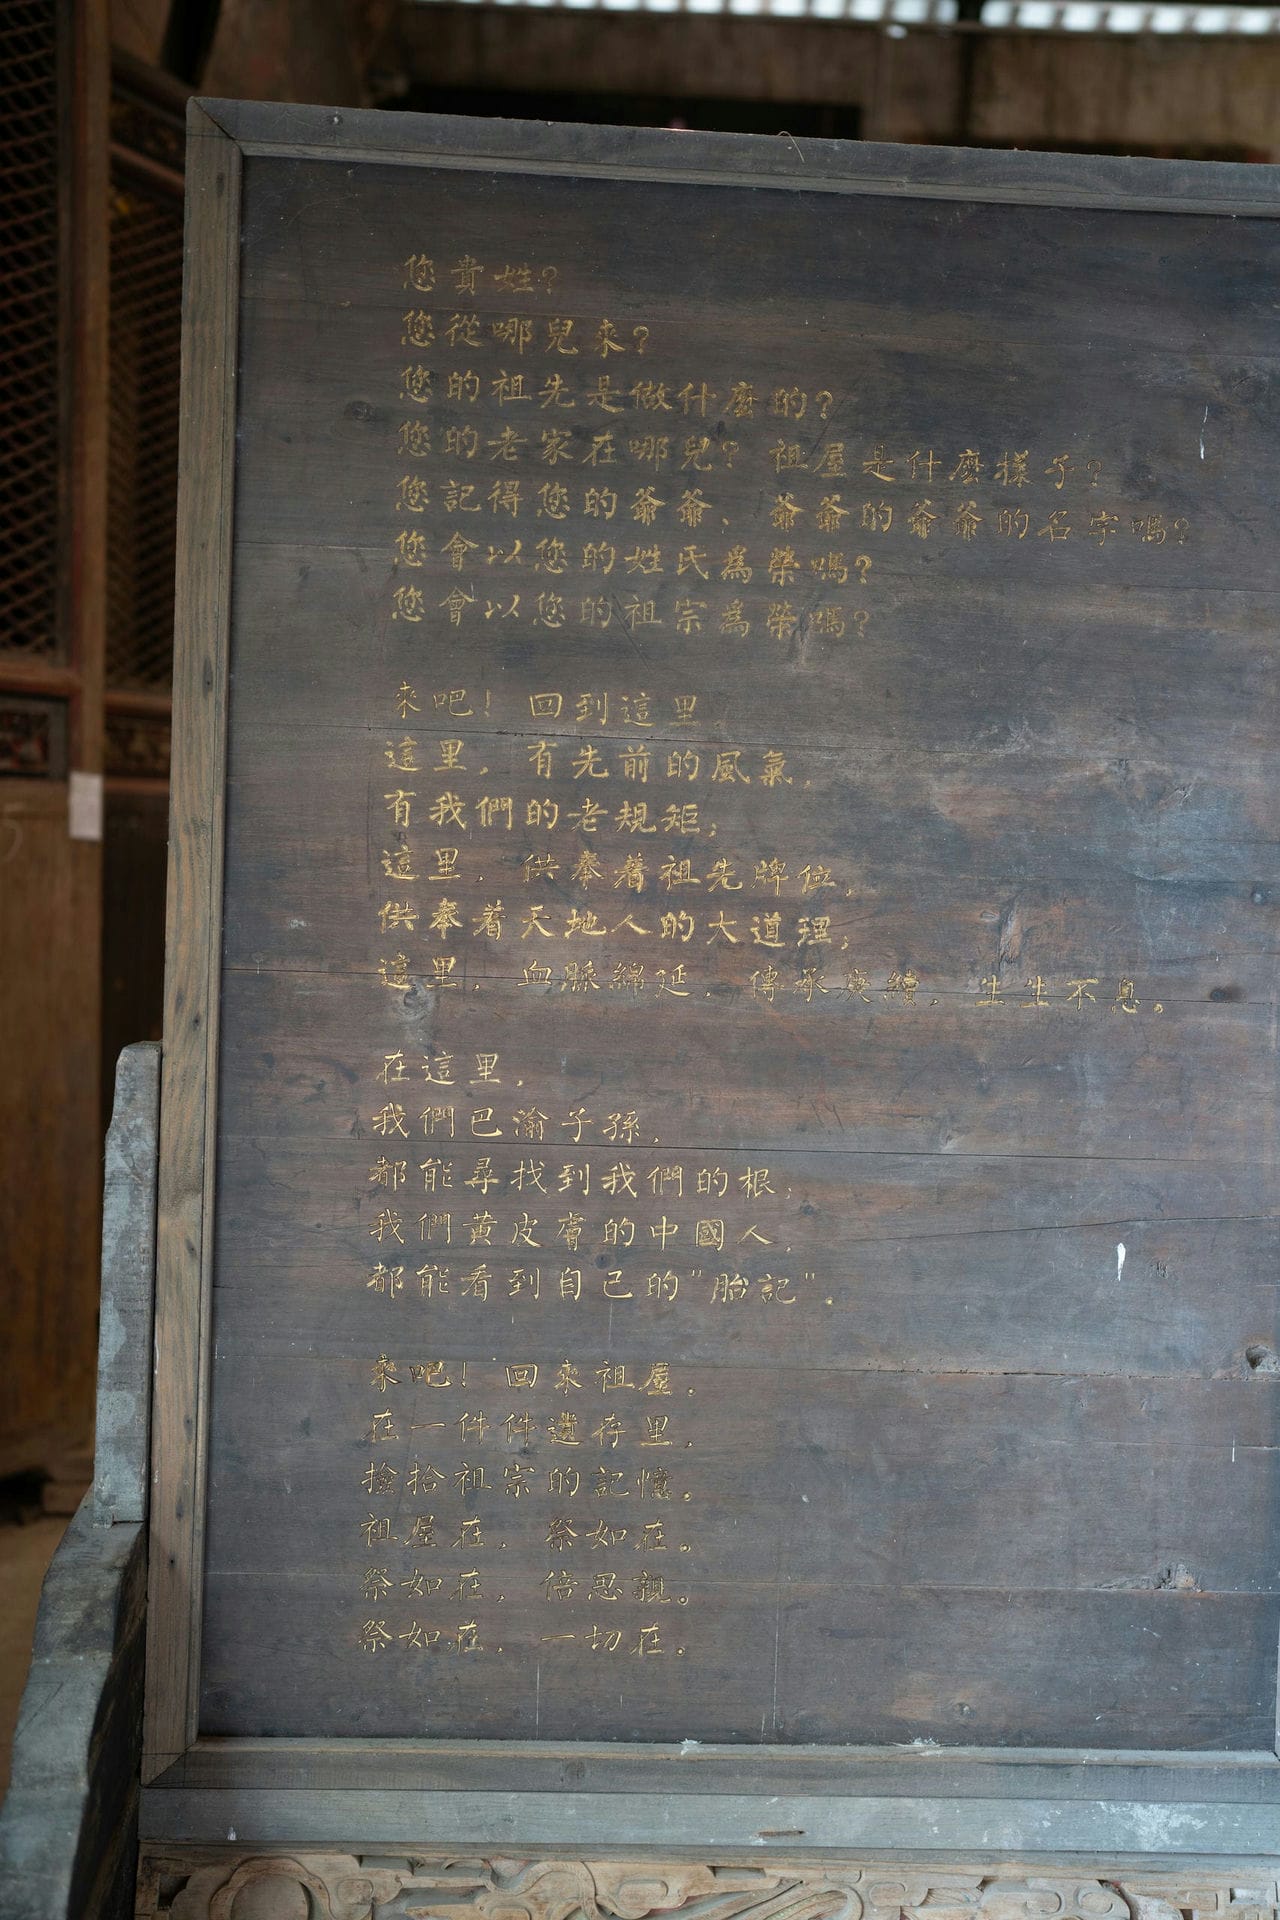 您貴姓?
您從哪兒來?
您的祖先是做什麼的?
您的老家在哪兒?祖屋是什麼樣子?
您記得您的爺爺、爺爺的爺爺的名字嗎?
您會以您的姓氏為榮嗎?
您會以您的祖宗為榮嗎?
來吧!回到這里。
這里,有先前的風氣,
有我們的老規矩;
這里,供奉着祖先牌位,
供奉着天地人的大道理;
這里,血脈綿延,傳承賡續,生生不息。
在這里,
我們巴渝子孫,
都能尋找到我們的根;
我們黃皮膚的中國人,
都能看到自己的"胎記"。
來吧!回來祖屋,
在一件件遺存里,
撿拾祖宗的記憶。
祖屋在,祭如在。
祭如在,倍思親。
祭如在,一切在。